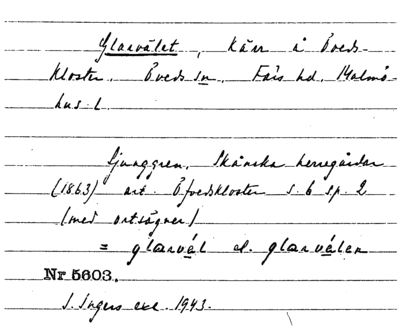 Glasvälet, Kärr å Öveds-
kloster, Öveds sn, Färs hd, Malmö-
hus l.
Ljunggren, Skånska herregårdar
(1863) art. Öfvedskloster s. 6 sp. 2
(med ortsägner)
= glasväl el. glasvälen
Nr 5603.
I. Ingers exc. 1943.